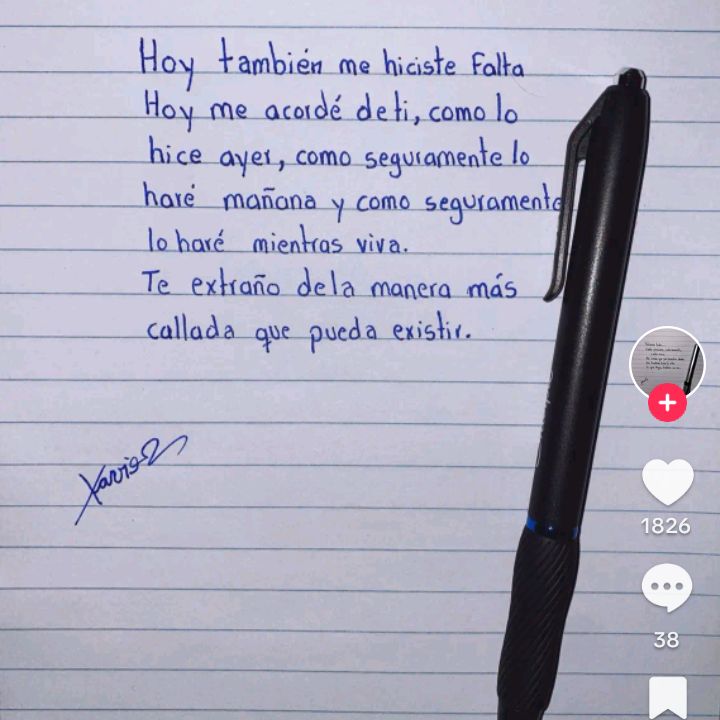 Hoy también me hiciste Falta
Hoy me acordé de ti, como lo
hice ayer, como seguramente lo
haré mañana y como seguramente
lo haré mientras viva.
Te extraño dela manera más
callada que pueda existir.
1826
38